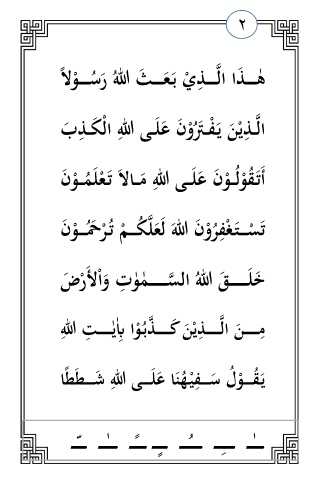 ٢
هٰذَا الَّذِيْ بَعَثَ اللهُ رَسُوْلاً
الَّذِيْنَ يَفْتَرُوْنَ عَلَى اللهِ الْكَذِبَ
أَتَقُوْلُوْنَ عَلَى اللهِ مَالاَ تَعْلَمُوْنَ
تَسْتَغْفِرُوْنَ اللهَ لَعَلَّكُمْ تُرْحَمُوْنَ
خَلَقَ اللهُ السَّمٰوٰتِ وَاْلأَرْضَ
مِنَ الَّذِيْنَ كَذَّبُوْا بِاٰيٰتِ اللهِ
يَقُوْلُ سَفِيْهُنَا عَلَى اللهِ شَطَطًا
ـٰ ـِ ـُ ـٍ ـً ـٰ ـّ